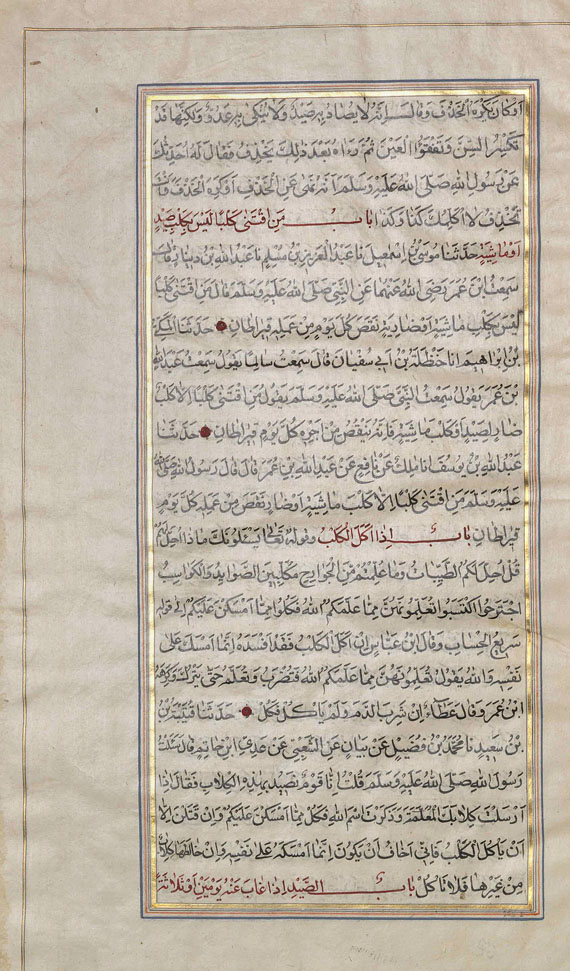 أو كان يكره الخذف وقال إنه لا يصاد به صيد ولا ينكى به عدو ولكنها قد
تكسر السن وتفقؤا العين ثم رءاه بعد ذلك يخذف فقال له احدثك
عن رسول الله صلى الله عليه وسلم أنه نهى عن الخذف أو كره الخذف وأنت
تخذف لا أكلمك كذا وكذا باب من اقتنى كلبا ليس بكلب صيد
أو ماشية حدثنا موسى بن إسمعيل نا عبد العزيز بن مسلم نا عبد الله بن دينار قال
سمعت ابن عمر رضى الله عنهما عن النبي صلى الله عليه وسلم قال من اقتنى كلبا
ليس بكلب ماشية أو ضارية نقص كل يوم من عمله قيراطان حدثنا المكي
بن إبراهيم انا حنظلة بن أبي سفيان قال سمعت سالما يقول سمعت عبد الله
بن عمر يقول سمعت النبي صلى الله عليه وسلم يقول من اقتنى كلبا إلا كلب
ضار لصيد أو كلب ماشية فإنه ينقص من أجره كل يوم قيراطان حدثنا
عبد الله بن يوسف انا ملك عن نافع عن عبد الله بن عمر قال قال رسول الله صلى الله
عليه وسلم من اقتنى كلبا إلا كلب ماشية أو ضار نقص من عمله كل يوم
قيراطان باب إذا أكل الكلب وقوله تعالى يسئلونك ماذا أحل لهم
قل أحل لكم الطيبات وما علمتم من الجوارح مكلبين الصوايد والكواسب
اجترحوا اكتسبوا تعلمونهن مما علمكم الله فكلوا مما أمسكن عليكم إلى قوله
سريع الحساب وقال ابن عباس إن أكل الكلب فقد أفسده إنما أمسك على
نفسه والله يقول تعلمونهن مما علمكم الله فتضرب وتعلم حتى تترك وكرهه
ابن عمر وقال عطاء إن شرب الدم ولم يأكل فكل حدثنا قتيبة بن
بن سعيد نا محمد بن فضيل عن بيان عن الشعبي عن عدي ابن حاتم قال سئلت
رسول الله صلى الله عليه وسلم قلت إنا قوم نصيد بهذه الكلاب فقال إذا
أرسلت كلابك المعلمة وذكرت اسم الله فكل مما أمسكن عليكم وإن قتلن إلا
أن يأكل الكلب فإني أخاف أن يكون إنما أمسكه على نفسه وإن خالطها كلاب
من غيرها فلا تأكل باب الصيد إذا غاب عنه يومين أو ثلاثة